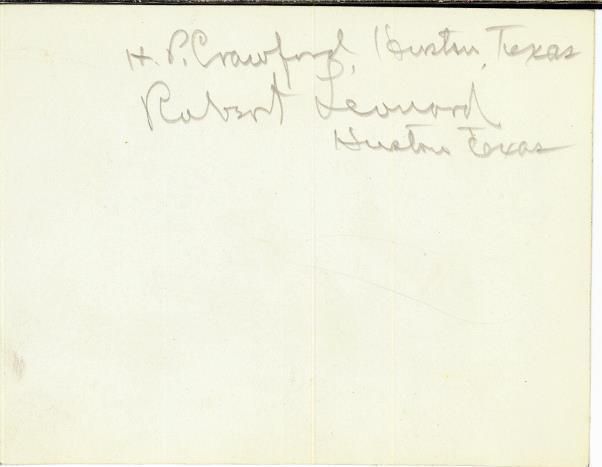 H. P. Crawford, Huston, Texas
Robert Leonard
Huston Texas